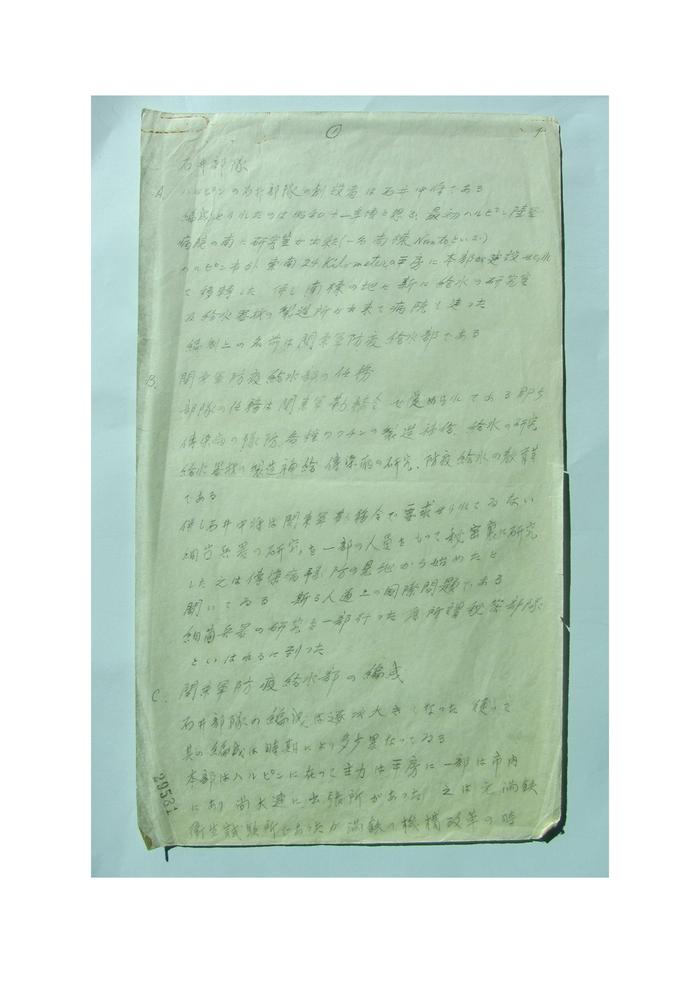 ①
石井部隊
A. ハルピンの石井部隊の創設者は石井中将である
編成せられたのは昭和十一年頃と思ふ 最初ハルピン陸軍
病院の南に研究室が出来(一名南棟 といふ)
ハルピン市外東南24 Kilometerの平房に本部が建設せられ
て移転した 併し南棟の地に新に給水の研究室
及給水器材の製造所が出来て病院も建った
編制上の名前は関東軍防疫給水部である
B. 関東軍防疫給水部の任務
部隊の任務は関東軍勤務令で定められてある即ち
傳染病の豫防、各種ワクチンの製造補給、給水の研究
給水器材の製造補給 傳染病の研究、防疫給水の教育
である
併し石井中将は関東軍勤務令で要求せられてゐない
細菌兵器の研究を一部の人員をもって秘密裏に研究
した 元は傳染病豫防の見地から始めたと
聞いてゐる 斯る人道上の国際問題である
細菌兵器の研究を一部行った為所謂秘密部隊
といはれるに到った
C. 関東軍防疫給水部の編成
石井部隊の編成は逐次大きくなった 従って
其の編成は時期により多少異なってゐる
本部はハルピンに在って主力は平房に一部は市内
にあり 尚大連に出張所があった 之は元満鉄
衛生試験所 満鉄の機構改革の時
29531